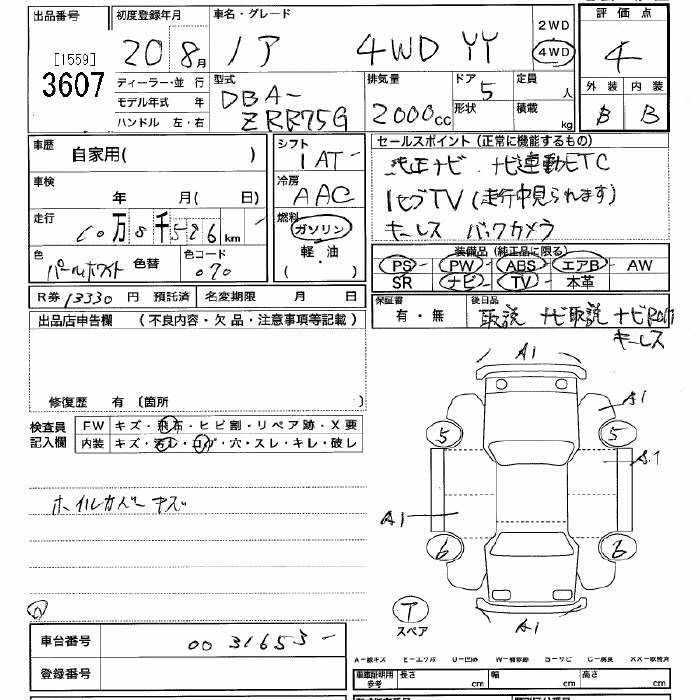 出品番号
[1559]
3607
初度登録年月
20年 8月
車名・グレード
ノア 4WD YY
2WD
4WD
評価点
4
外装 内装
B B
ディーラー・並行
モデル年式 年
ハンドル 左・右
型式
DBA-
ZRR75G
排気量
2000cc
ドア
5
形状
定員
人
積載
kg
車歴
自家用( )
車検
年 月( 日)
走行
10万8千526km
色
パールホワイト 色替
色コード
070
シフト
IAT-
冷房
AAC
燃料
ガソリン
軽・油
( )
セールスポイント(正常に機能するもの)
純正ナビ ナビ連動ETC
1セグTV(走行中見られます)
キーレス バックカメラ
装備品(純正品に限る)
PS PW ABS エアB AW
SR ナビ TV 本革
R券 13330円 預託済 名変期限 月 日
保証書
有・無
後日品
取説 ナビ取説 ナビROM
キーレス
出品店申告欄 (不良内容・欠品・注意事項等記載)
修復歴 有 (箇所 )
検査員
記入欄
FW キズ・飛石・ヒビ割・リペア跡・X要
内装 キズ・汚レ・コゲ・穴・スレ・キレ・破レ
ホイルカバーキズ
A1
A1
5 5
A1
A1
6 6
T
スペア
A1
車台番号 00 31653-
登録番号
A-線キズ E-エクボ U-凹み W-補修跡 S-サビ C-腐食 XX-取替済
車庫証明用
参考
長さ cm 幅 cm 高さ cm